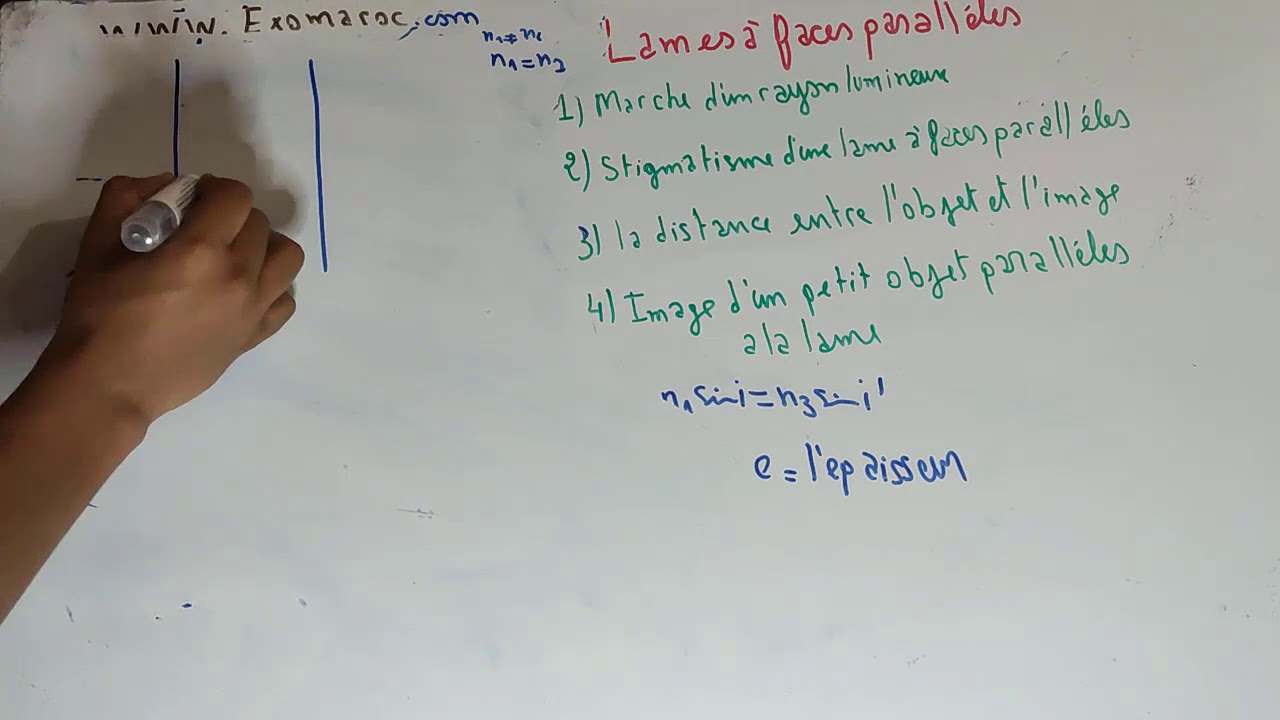 www. Exomaroc.com
n₁≠n₂
n₁=n₃
Lames à faces parallèles
1) Marche d'un rayon lumineux
2) Stigmatisme d'une lame à faces parallèles
3) la distance entre l'objet et l'image
4) Image d'un petit objet parallèles
à la lame
n₁ sin i = n₃ sin i'
e = l'epaisseur